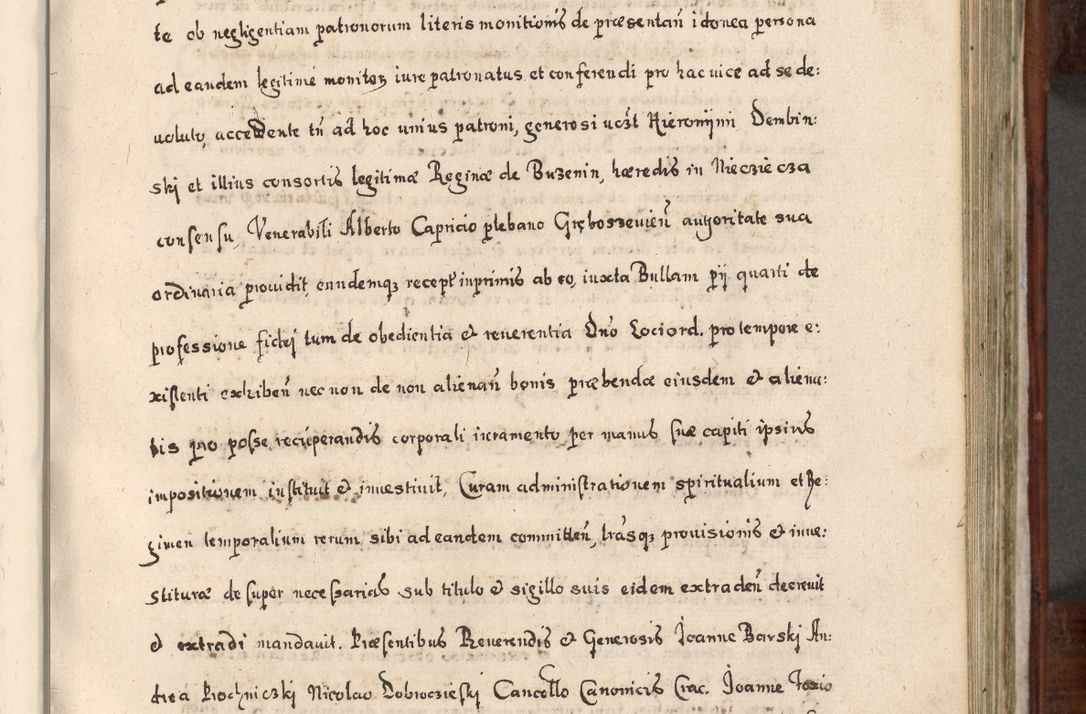 te ob negligentiam patronorum literis monitionis de præsentañ idonea persona
ad eandem legitime monitoꝝ iure patronatus et conferendi pro hac uice ad se de:
uoluto, accedente tñ ad hoc unius patroni, generosi Hieronijmi Dembin:
skj et illius consortis legitimæ Reginæ de Buzenin, hæredis in Nieczięcza
consensu, Venerabili Alberto Capricio plebano Grębosseuieñ autoritate sua
ordinaria prouidit, eundemqȝ recepť inprimis ab eo, iuxta Bullam pij quarti de
professione fidej tum de obedientia et reuerentia Dño Loci ord. pro tempore e:
xistenti exhibeñ nec non de non alienañ bonis præbendæ eiusdem et aliena:
tis pro posse recuperandis corporali iuramento per manus suæ capiti ipsius
impositionem instituit et inuestiuit, Curam administrationem spiritualium et Re:
gimen temporalium rerum sibi ad eandem committeñ, lr̃asqȝ prouisionis et inue:
stituræ de super necessarias sub titulo et sigillo suis eidem extradeñ decreuit
et extradi mandauit. Præsentibus Reuerendis et Generosis Joanne Barskj An:
drea Prochniczkj Nicolao Dobroczieskj Cancello Canonicis Crac. Joanne